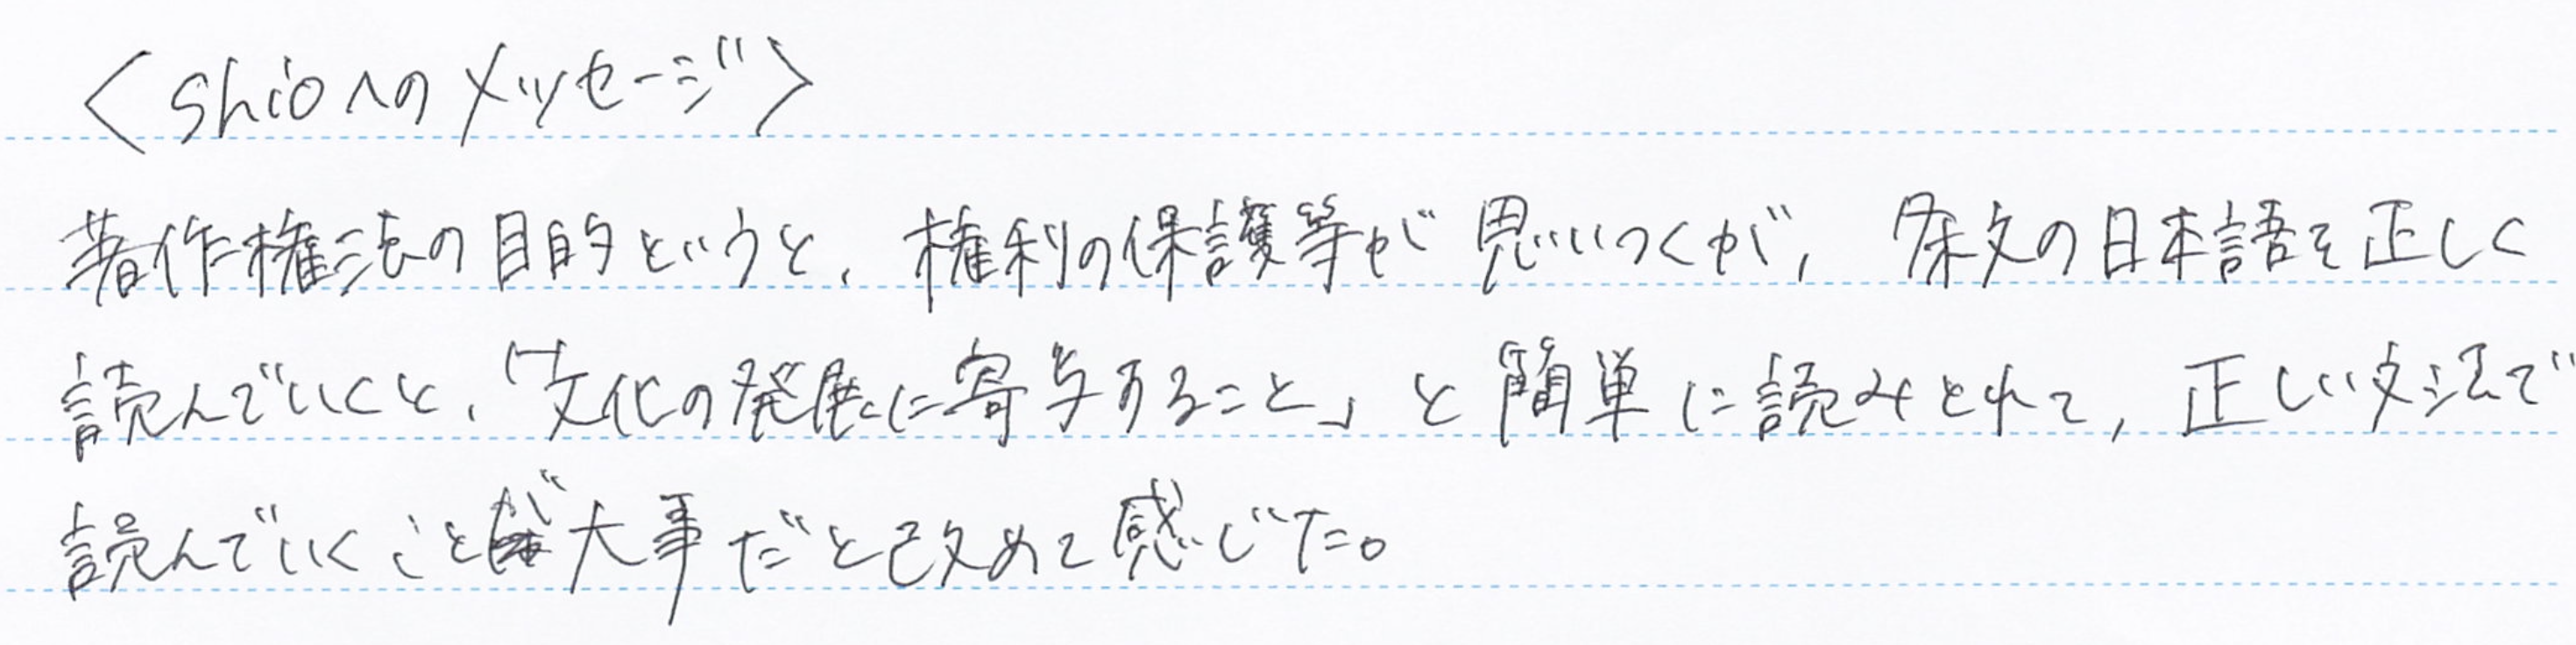 〈shioへのメッセージ〉
著作権法の目的というと、権利の保護等が思いつくが、条文の日本語を正しく
読んでいくと、「文化の発展に寄与すること」と簡単に読みとれて、正しい文法で
読んでいくことが大事だと改めて感じた。